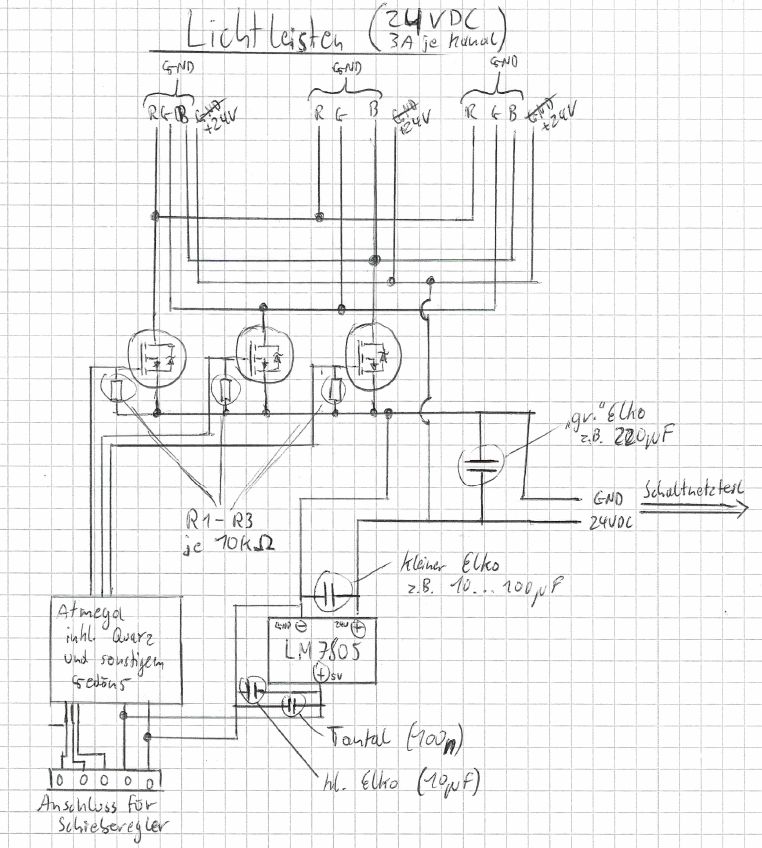 Lichtleisten (24VDC
3A je Kanal)
GND GND GND
R G B GND +24V
R G B GND +24V
R G B GND +24V
„gr.“ Elko
z.B. 220µF
GND
24VDC
Schaltnetzteil
R1-R3
je 10kΩ
kleiner Elko
z.B. 10...100µF
GND ⊖ 24V ⊕
LM7805
⊕ 5V
Atmega
inkl. Quarz
und sonstigem
Gedöns
Tantal (100n)
kl. Elko (10µF)
Anschluss für
Schieberegler